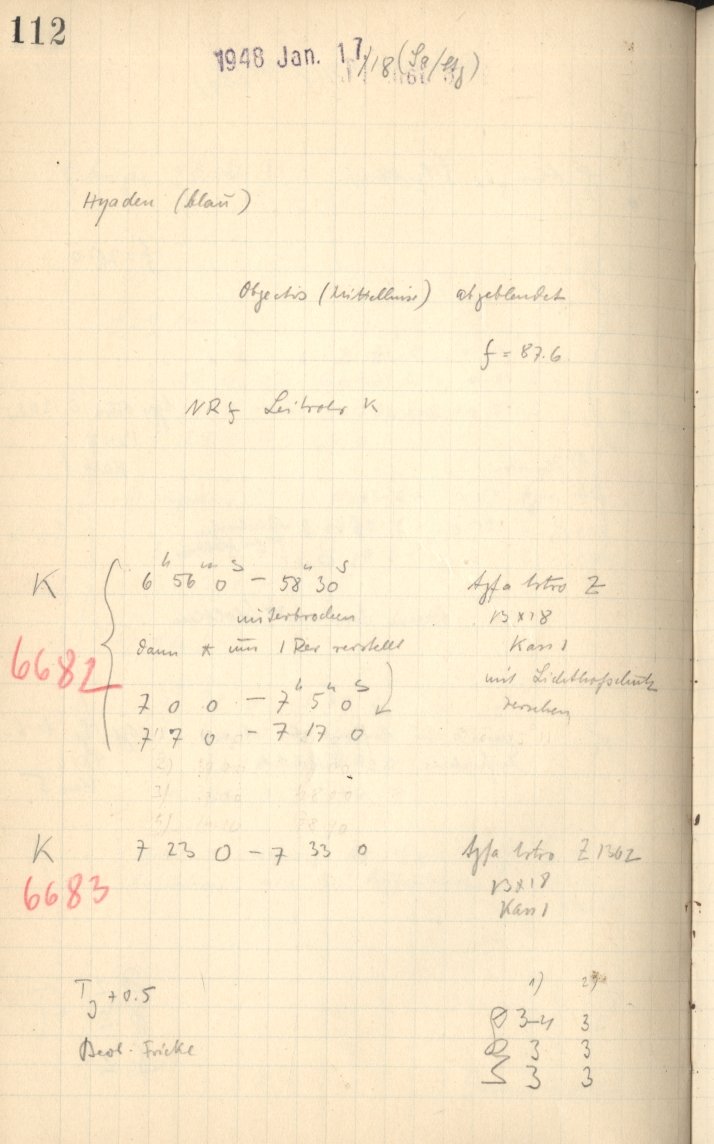 112
1948 Jan. 17/18 (Sa/Stg)
Hyaden (blau)
Objectiv (Mittellinse) abgeblendet
f = 87.6
Leitrohr K
K 6h 56m 0s - 58m 30s Agfa Astro Z
unterbrochen 13 x 18
dann * um 1 Rev verstellt Kass 1
6682 mit Lichthofschutz
7 0 0 - 7h 5m 0s versehen
7 7 0 - 7 17 0
K 7 23 0 - 7 33 0 Agfa Astro Z 1362
6683 13 x 18
Kass 1
1) 2)
TJ +0.5
3-4 3
Beob. Fricke 3 3
S 3 3